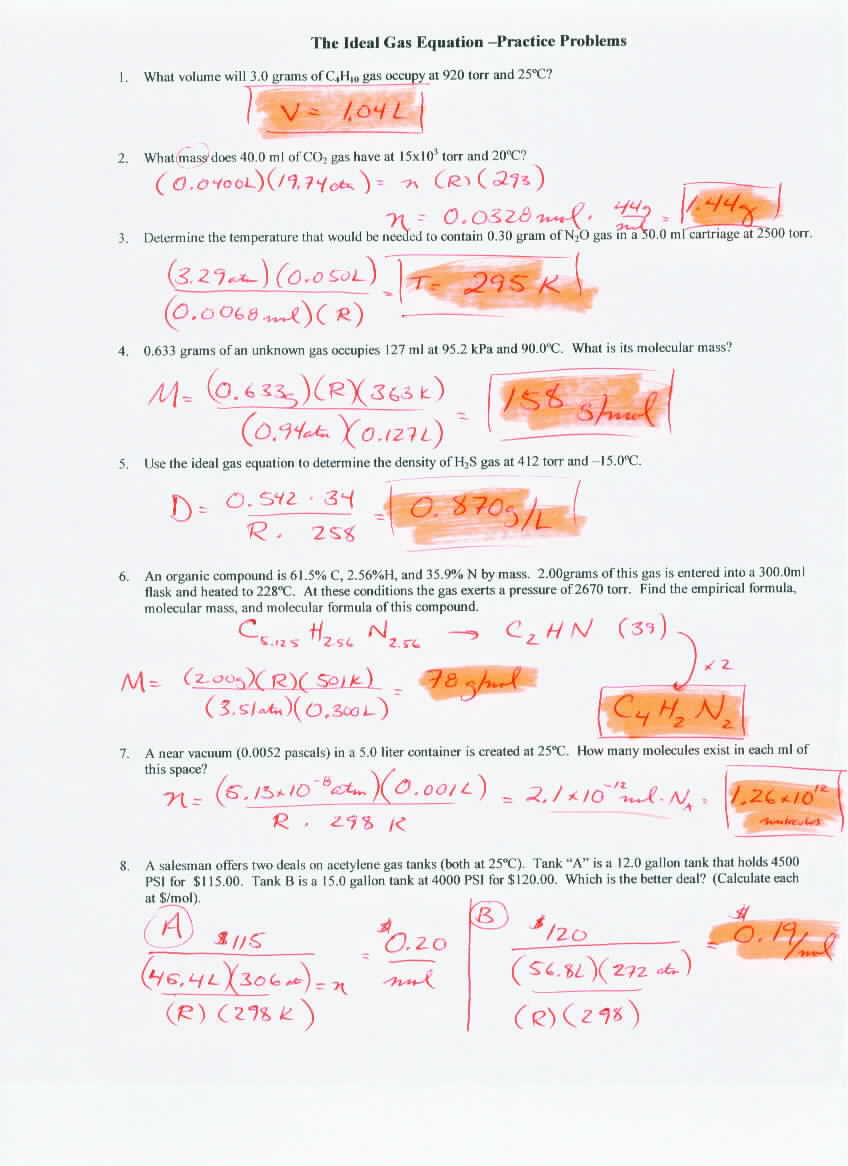 The Ideal Gas Equation –Practice Problems
1. What volume will 3.0 grams of C₄H₁₀ gas occupy at 920 torr and 25ºC?
V = 1.04L
2. What mass does 40.0 ml of CO₂ gas have at 15x10³ torr and 20ºC?
(0.0400L)(19.74atm) = n (R)(293)
n = 0.0328 mol · 44g/mol = 1.44g
3. Determine the temperature that would be needed to contain 0.30 gram of N₂O gas in a 50.0 ml cartriage at 2500 torr.
(3.29atm)(0.050L)
= T = 295 K
(0.0068 mol)(R)
4. 0.633 grams of an unknown gas occupies 127 ml at 95.2 kPa and 90.0ºC. What is its molecular mass?
M = (0.633g)(R)(363K)
= 158 g/mol
(0.94atm)(0.127L)
5. Use the ideal gas equation to determine the density of H₂S gas at 412 torr and –15.0ºC.
D = 0.542 · 34
= 0.870g/L
R · 258
6. An organic compound is 61.5% C, 2.56%H, and 35.9% N by mass. 2.00grams of this gas is entered into a 300.0ml
flask and heated to 228ºC. At these conditions the gas exerts a pressure of 2670 torr. Find the empirical formula,
molecular mass, and molecular formula of this compound.
C₅.₁₂₅ H₂.₅₆ N₂.₅₆ → C₂HN (39)
x 2
M = (2.00g)(R)(501K) = 78 g/mol
(3.51atm)(0.300L)
C₄H₂N₂
7. A near vacuum (0.0052 pascals) in a 5.0 liter container is created at 25ºC. How many molecules exist in each ml of
this space?
n = (5.13x10⁻⁸atm)(0.001L) = 2.1x10⁻¹² mol · N_A = 1.26x10¹²
R · 298 K
molecules
8. A salesman offers two deals on acetylene gas tanks (both at 25ºC). Tank “A” is a 12.0 gallon tank that holds 4500
PSI for $115.00. Tank B is a 15.0 gallon tank at 4000 PSI for $120.00. Which is the better deal? (Calculate each
at $/mol).
A
$115
(45.4L)(306atm) = n
(R)(298K)
= $0.20
mol
B
$120
(56.8L)(272 atm)
(R)(298)
= $0.19/mol